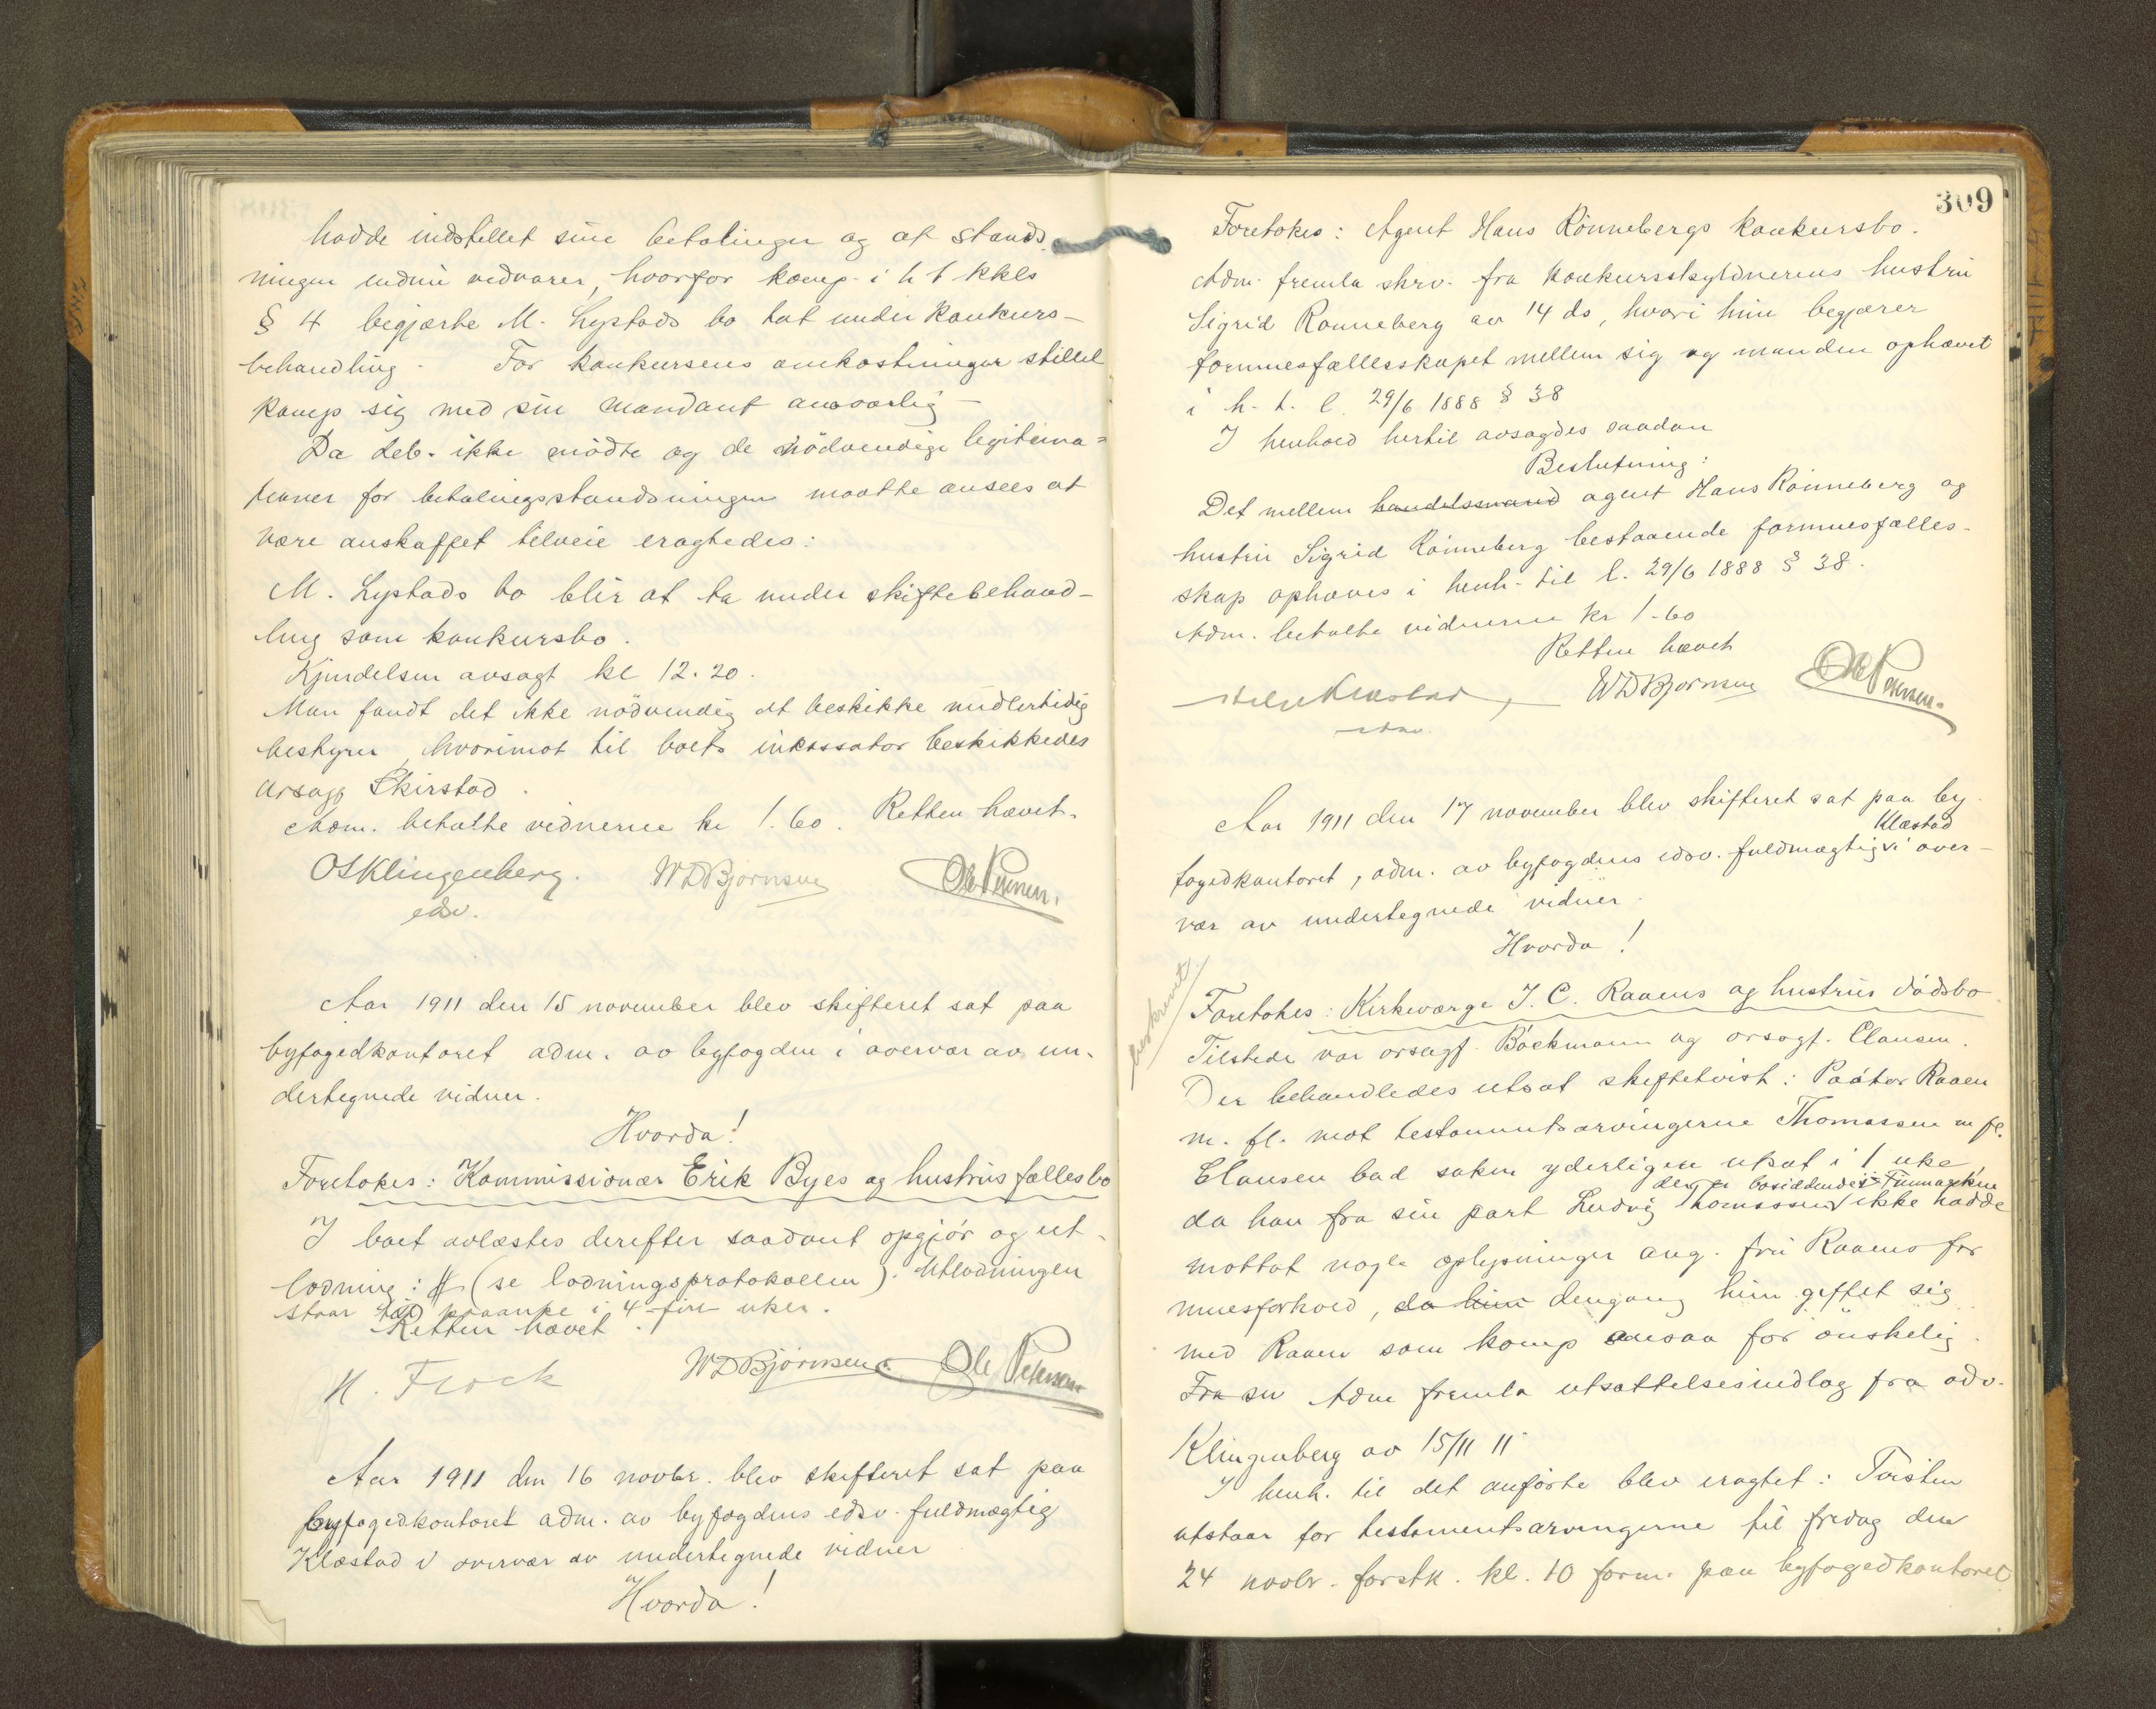 hadde indstillet sine betalinger og at stands-
ningen endnu vedvarer, hvorfor komp. i h t kkls
§ 4 begjærte M. Lystads bo tat under konkurs-
behandling. For konkursens omkostninger stillet
komp sig med sin mandant ansvarlig -
Da deb. ikke mødte og de nödvendige legitima=
tioner for betalingsstandsningen maatte ansees at
være anskaffet tilveie eragtedes:
M. Lystads bo blir at ta under skiftebehand-
ling som konkursbo.
Kjendelsen avsagt kl 12.20.
Man fandt det ikke nödvendig at beskikke midlertidig
bestyrer, hvorimot til boets inkassator beskikkedes
orsagf Skirstad.
Adm. betalte vidnerne kr 1.60. Retten hævet.
OSKlingenberg. WDBjørnsen Ole Petersen.
edsv.
Aar 1911 den 15 november blev skifteret sat paa
byfogedkontoret adm. av byfogden i overvær av un-
dertegnede vidner.
Hvorda!
Foretokes: Kommissionær Erik Byes og hustrus fællesbo
I boet avlæstes derefter saadant opgjör og ut-
lodning: # (se lodningsprotokollen). Utlodningen
staar til paaanke i 4 fire uker.
Retten hævet.
N. Flock WDBjörnsen. Ole Petersen
Aar 1911 den 16 novbr. blev skifteret sat paa
byfogedkontoret adm. av byfogdens edsv. fuldmægtig
Klæstad i overvær av undertegnede vidner
Hvorda!
309
Foretokes: Agent Hans Rönnebergs konkursbo.
Adm. fremla skrv. fra konkursskyldnerens hustru
Sigrid Rönneberg av 14 ds, hvori hun begjærer
formuesfællesskapet mellem sig og manden ophævet
i h. t. l. 29/6 1888 § 38
I henhold hertil avsagdes saadan
Beslutning:
Det mellem handelsmand agent Hans Rönneberg og
hustru Sigrid Rönneberg bestaaende formuesfælles-
skap ophæves i henh. til l. 29/6 1888 § 38.
Adm. betalte vidnerne kr 1.60
Retten hævet
Klæstad WDBjörnsen Ole Petersen.
edsv.
Aar 1911 den 17 november blev skifteret sat paa by-
Klæstad
fogedkontoret, adm. av byfogdens edsv. fuldmægtig i over-
vær av undertegnede vidner.
Hvorda!
beskrevet
Foretokes: Kirkeværge J. C. Raaens og hustrus dödsbo
Tilstede var orsagf. Böckmann og orsagf. Clausen.
Der behandledes utsat skiftetvist: Pastor Raaen
m. fl. mot testamentsarvingerne Thomassen m fl.
Clausen bad saken yderligere utsat i 1 uke
der er bosiddende i Finnmarken
da han fra sin part Ludvig Thomassen ikke hadde
mottat nogle oplysninger ang. fru Raaens for
muesforhold, da hun dengang hun giftet sig
med Raaen som komp ansaa for önskelig.
Fra sv Adm fremla utsættelsesindlæg fra adv.
Klingenberg av 15/11 11
I henh. til det anførte blev eragtet: Tvisten
utstaar for testamentsarvingerne til fredag den
24 novbr. førstk. kl. 10 form. paa byfogedkontoret